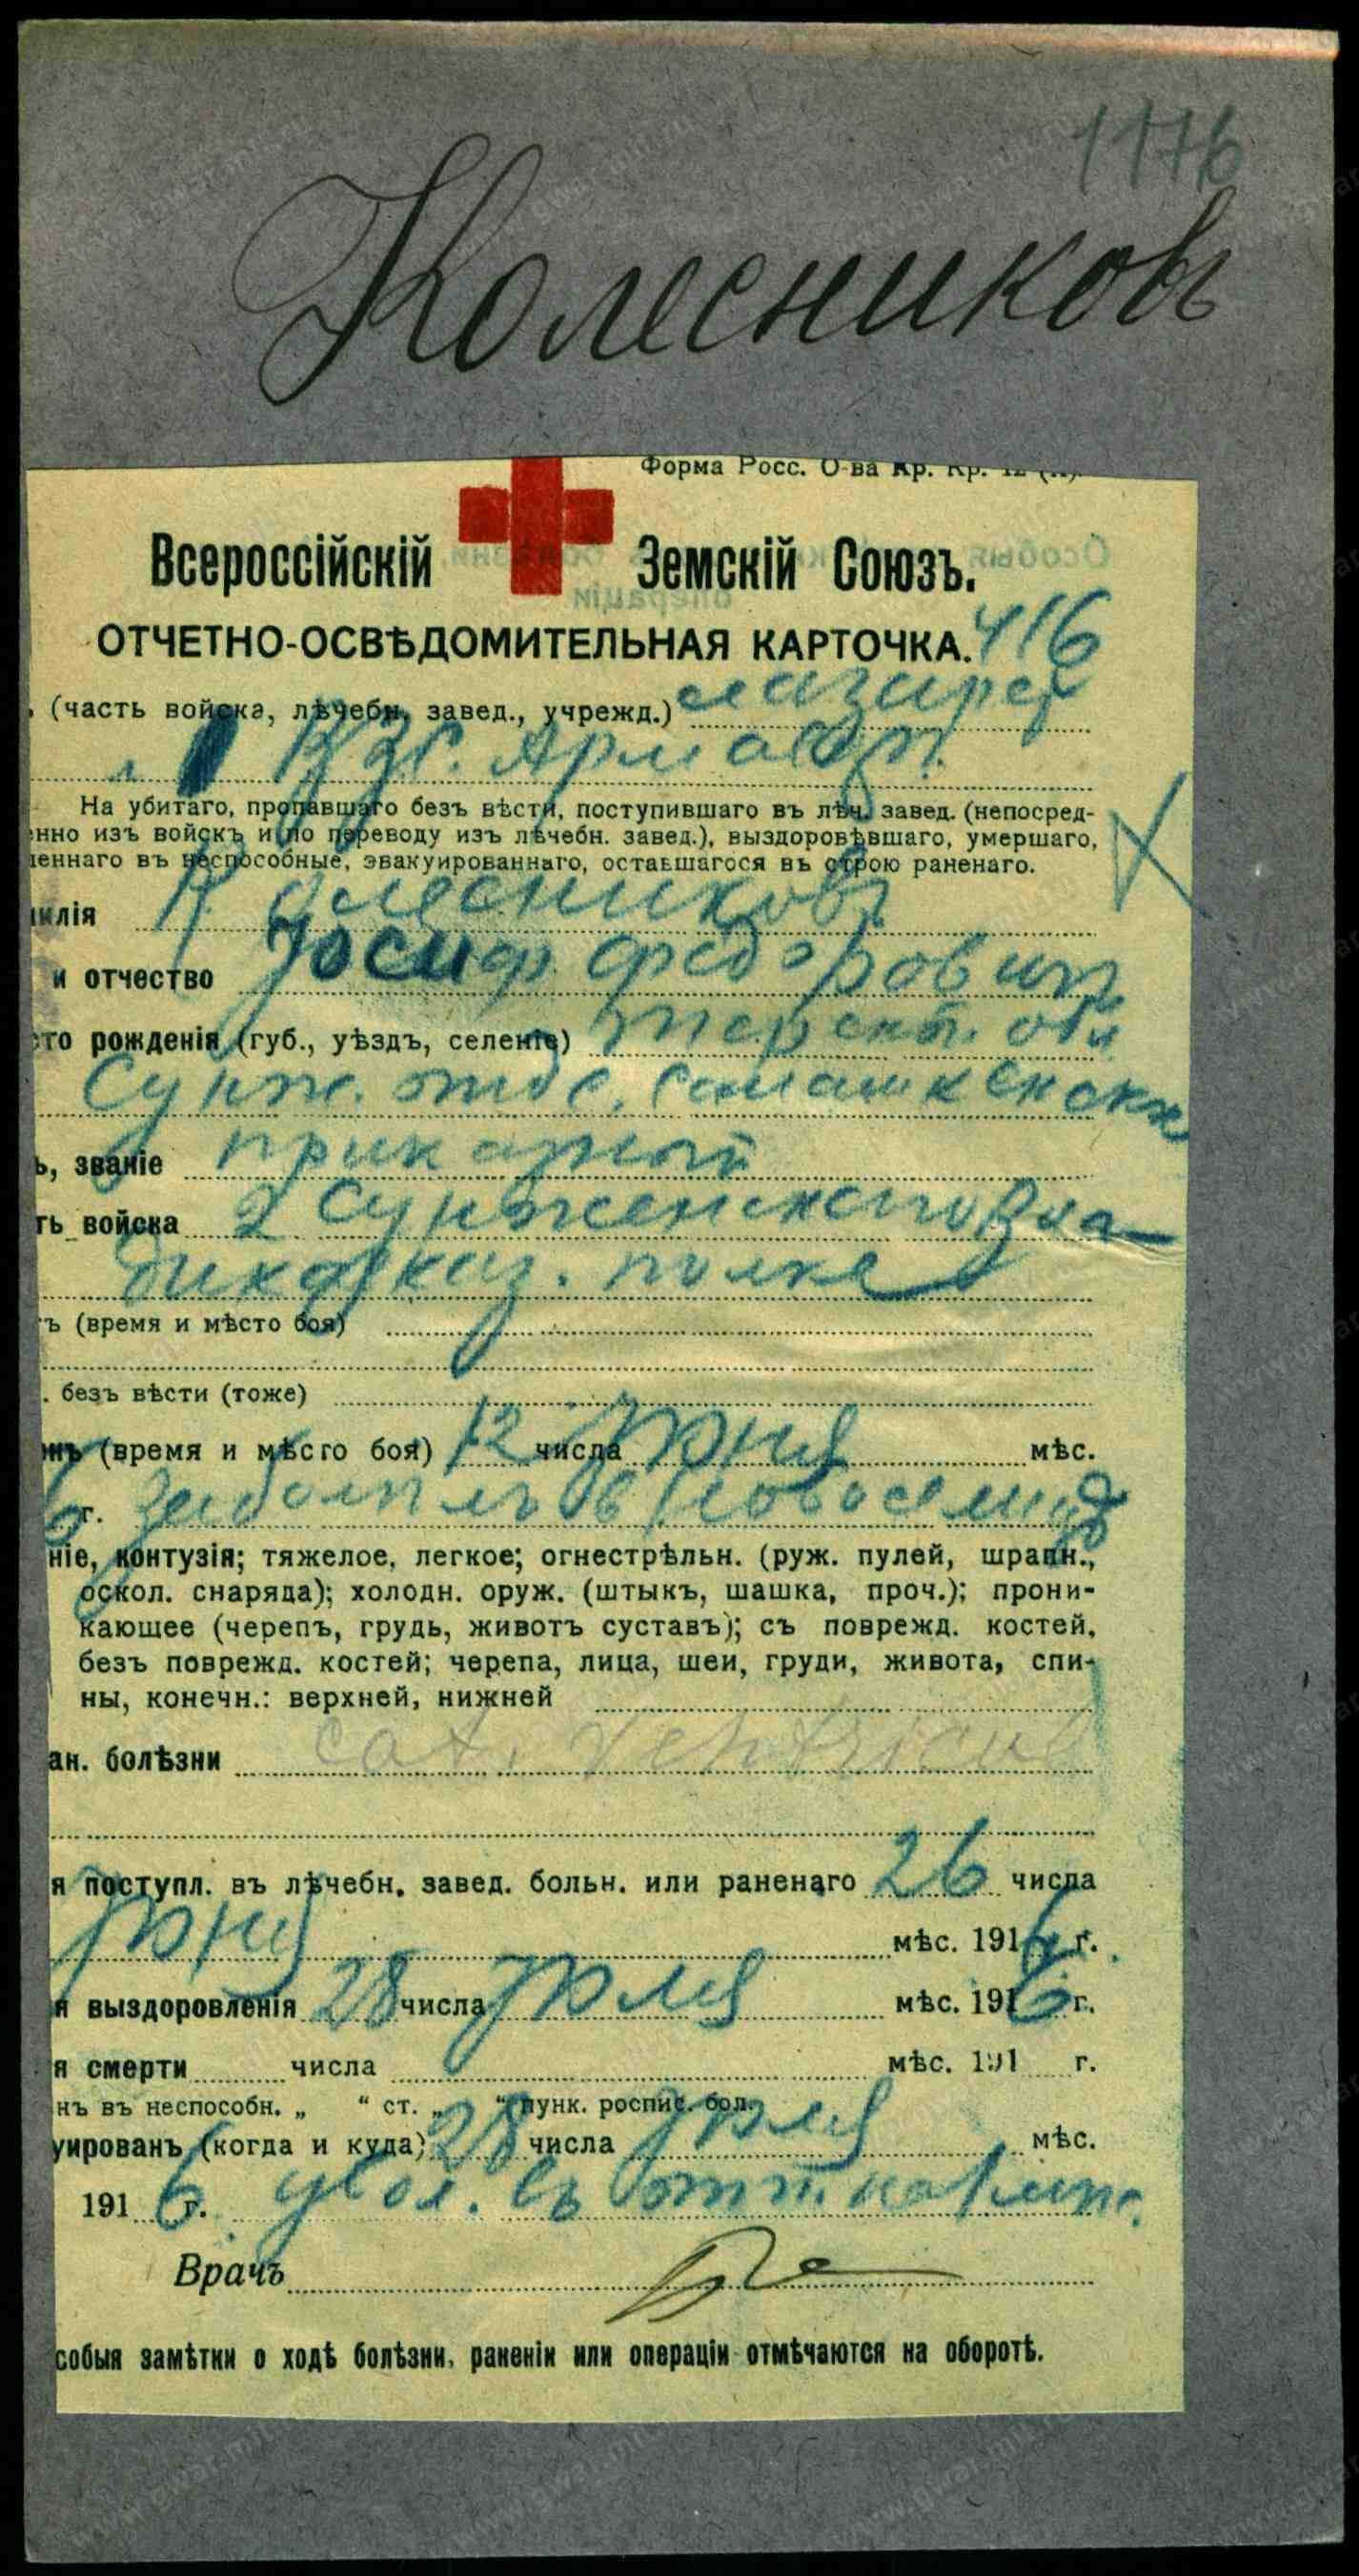 1176
Колесниковъ
Форма Росс. О-ва Кр. Кр. 12
Всероссійскій Земскій Союзъ.
ОТЧЕТНО-ОСВѢДОМИТЕЛЬНАЯ КАРТОЧКА. 416
(часть войска, лѣчебн. завед., учрежд.) лазарет
В.З.С. Армавир.
На убитаго, пропавшаго безъ вѣсти, поступившаго въ лѣч. завед. (непосред-
нно изъ войскъ и по переводу изъ лѣчебн. завед.), выздоровѣвшаго, умершаго,
леннаго въ неспособные, эвакуированнаго, оставшагося въ строю раненаго.
илія Колесниковъ
и отчество Іосиф Федорович
то рожденія (губ., уѣздъ, селеніе) Терск. обл
Сунж. отдѣ. Самашкенской
ь, званіе приказный
ть войска 2 Сунженского Вла-
дикавказ. полка
ъ (время и мѣсто боя)
. безъ вѣсти (тоже)
нъ (время и мѣсто боя) 12 числа Іюня мѣс.
6 г. Заболѣлъ в Новоселица
ніе, контузія; тяжелое, легкое; огнестрѣльн. (руж. пулей, шрапн.,
оскол. снаряда); холодн. оруж. (штыкъ, шашка, проч.); прони-
кающее (черепъ, грудь, животъ суставъ); съ поврежд. костей,
безъ поврежд. костей; черепа, лица, шеи, груди, живота, спи-
ны, конечн.: верхней, нижней
ан. болѣзни cat. ventricul
я поступл. въ лѣчебн. завед. больн. или раненаго 26 числа
Іюня мѣс. 1916 г.
я выздоровленія 28 числа Іюля мѣс. 1916 г.
я смерти числа мѣс. 191 г.
нъ въ неспособн. „ “ ст. „ “ пунк. роспис. бол.
уированъ (когда и куда) 28 числа Іюля мѣс.
1916 г. увол. въ отп.
Врачъ
собыя замѣтки о ходѣ болѣзни, раненіи или операціи отмѣчаются на оборотѣ.